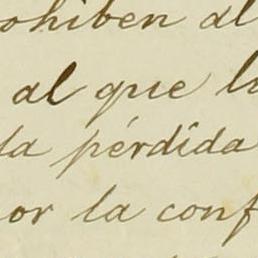 ohiben al
al que l
la pérdida
or la conf